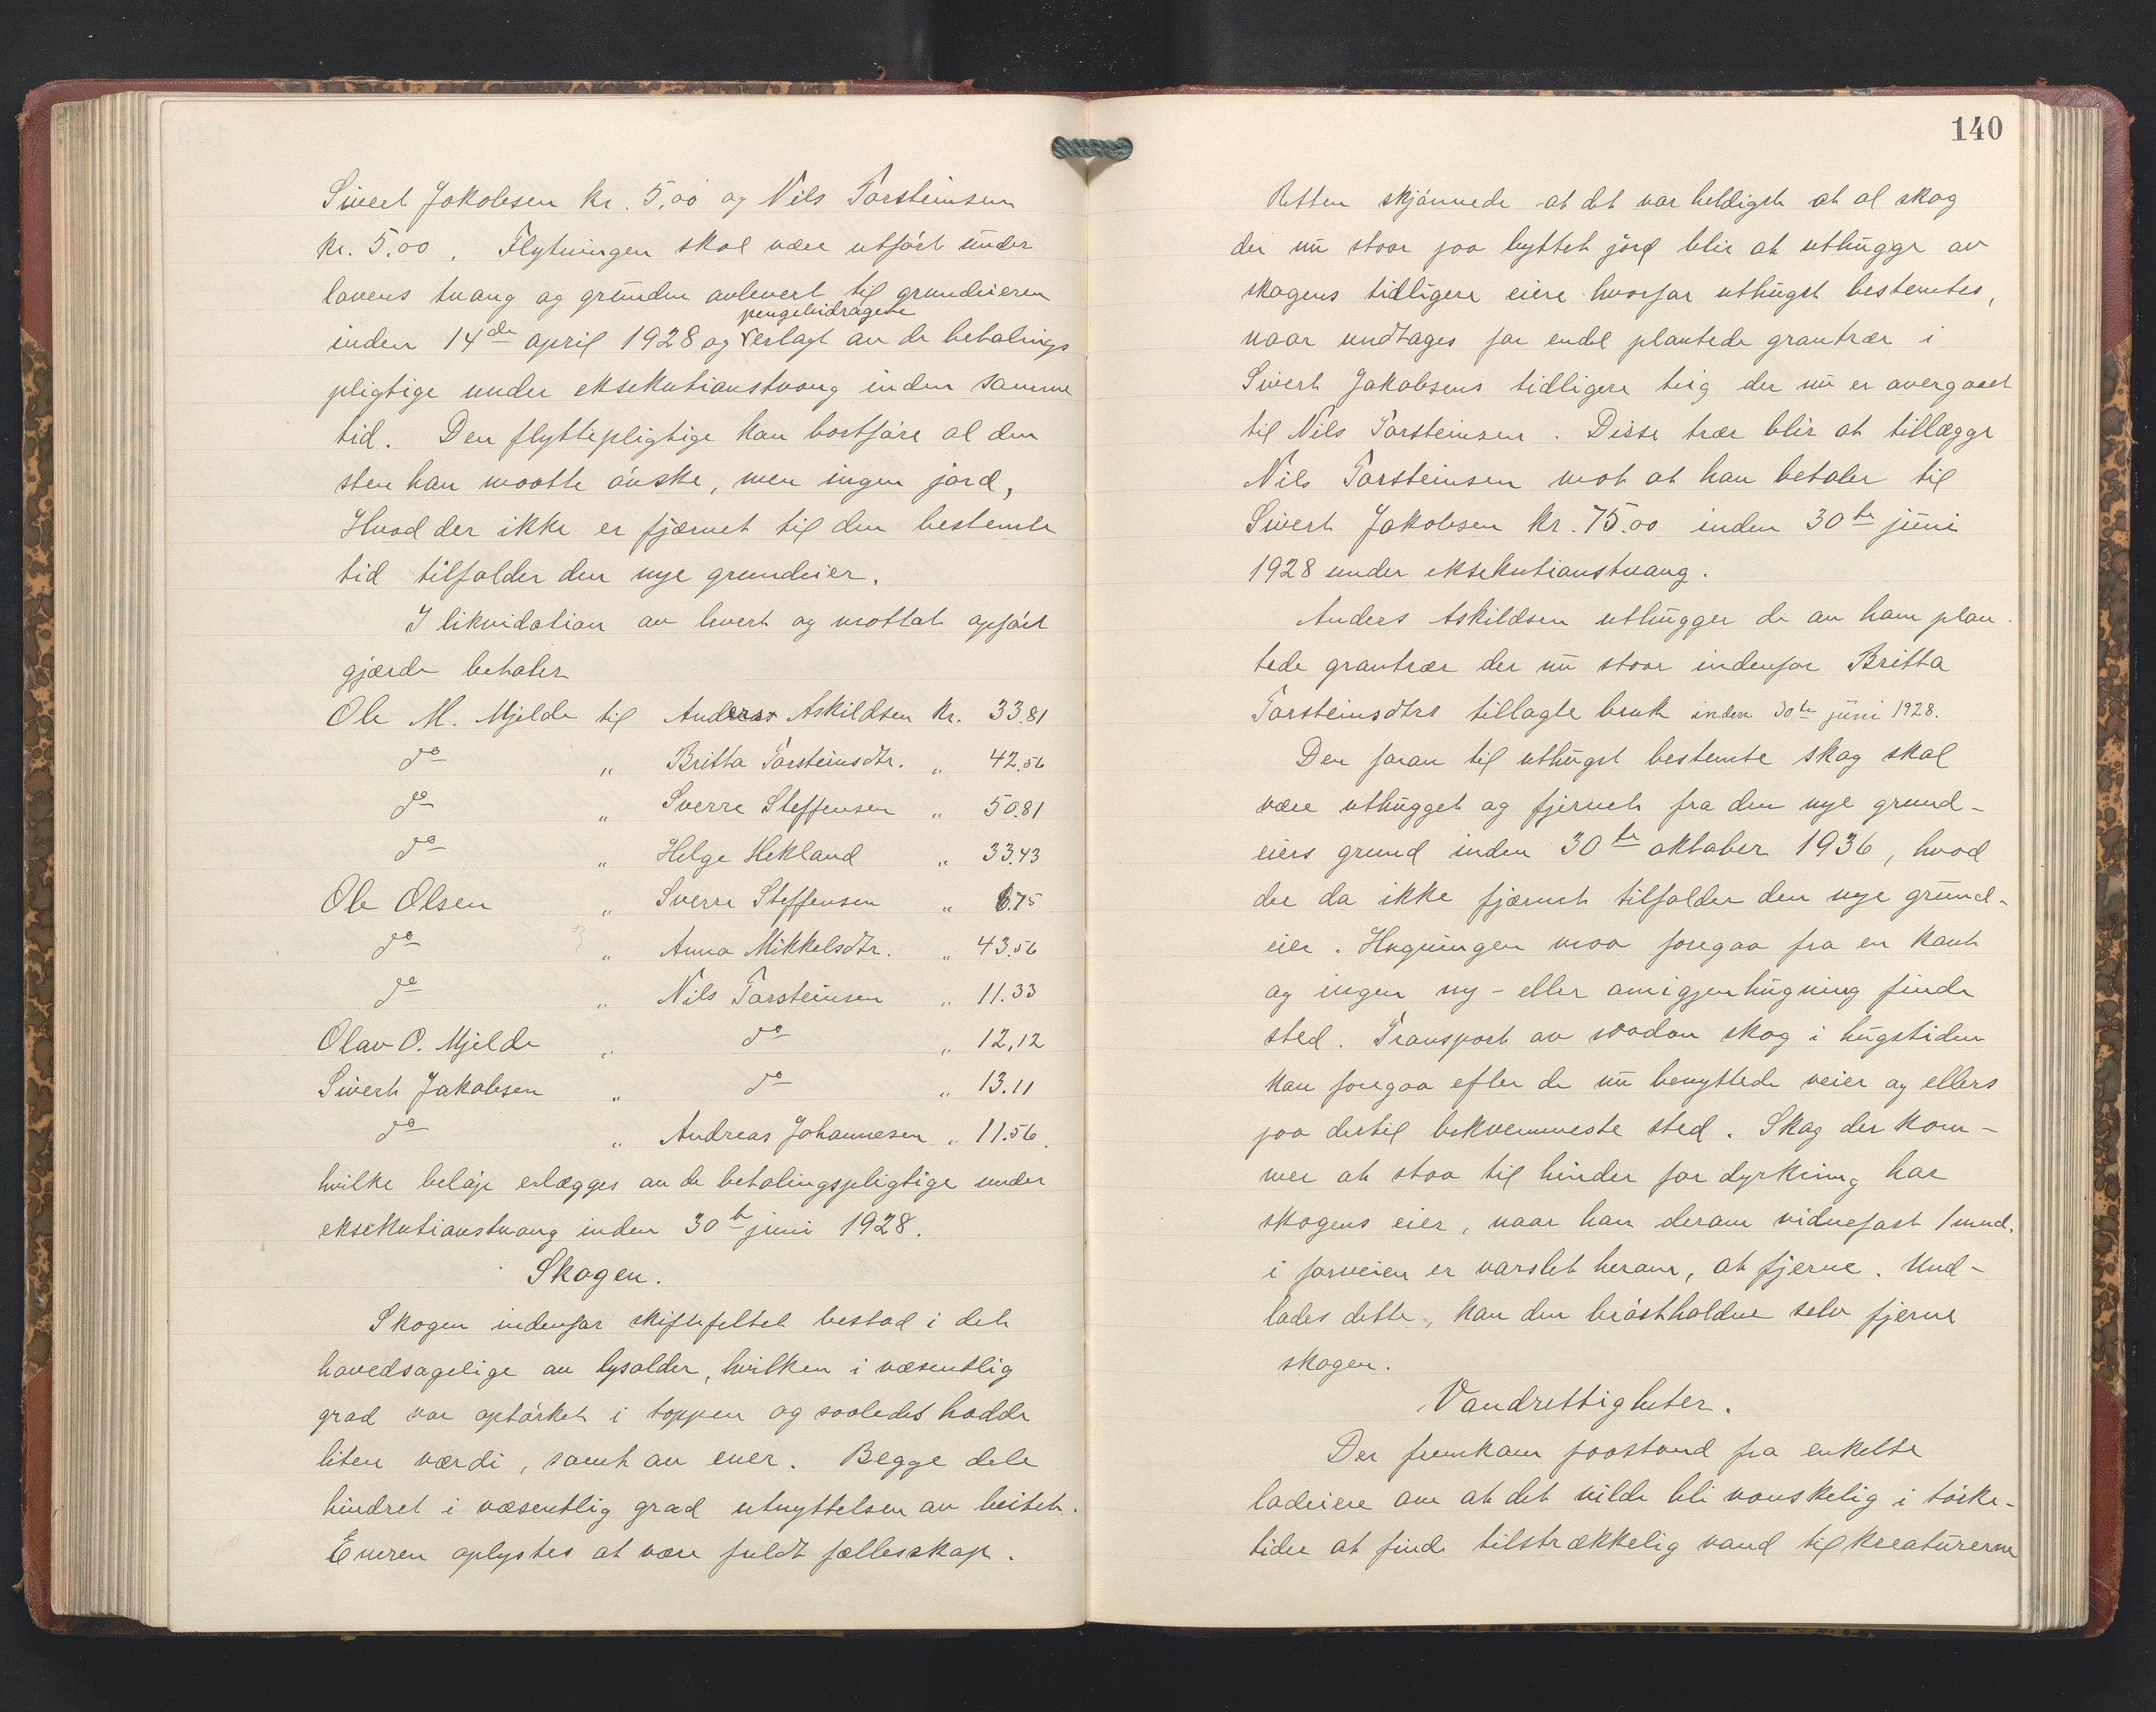 Sivert Jakobsen kr. 5,00 og Nils Torsteinsen
kr. 5.00. Flytningen skal være utført under
lovens tvang og grunden avlevert til grundeieren
pengebidragene
inden 14de april 1928 og erlagt av de betalings
pligtige under eksekutionstvang inden samme
tid. Den flyttepligtige kan bortføre al den
sten han maatte ønske, men ingen jord,
Hvad der ikke er fjærnet til den bestemte
tid tilfalder den nye grundeier.
I likvidation av levert og mottat opført
gjærde betaler
Ole M. Mjelde til Anders Askildsen kr. 33.81
do " Britta Torsteinsdtr. " 42.56
do " Sverre Steffensen " 50.81
do " Helge Hekland " 33.43
Ole Olsen " Sverre Steffensen " 6.75
do " Anna Mikkelsdtr. " 43.56
do " Nils Torsteinsen " 11.33
Olav O. Mjelde " do " 12,12
Sivert Jakobsen " do " 13.11
do " Andreas Johannesen " 11.56.
hvilke beløp erlægges av de betalingspligtige under
eksekutionstvang inden 30te juni 1928.
Skogen.
Skogen indenfor skiftefeltet bestod i det
hovedsagelige av lysolder, hvilken i væsentlig
grad var optørket i toppen og saaledes hadde
liten værdi, samt av ener. Begge dele
hindret i væsentlig grad utnyttelsen av beitet.
Eneren oplystes at være fuldt fællesskap.
140
Retten skjønnede at det var heldigst at al skog
der nu staar paa byttet jord blir at uthugge av
skogens tidligere eiere hvorfor uthugst bestemtes,
naar undtages for endel plantede grantrær i
Sivert Jakobsens tidligere teig der nu er overgaaet
til Nils Torsteinsen. Disse trær blir at tillægge
Nils Torsteinsen mot at han betaler til
Sivert Jakobsen kr. 75.00 inden 30te juni
1928 under eksekutionstvang.
Anders Askildsen uthugger de av ham plan-
tede grantrær der nu staar indenfor Britta
Torsteinsdtrs tillagte bruk inden 30te juni 1928.
Den foran til uthugst bestemte skog skal
være uthugget og fjernet fra den nye grund-
eiers grund inden 30te oktober 1936, hvad
der da ikke fjærnet tilfalder den nye grund-
eier. Hugningen maa foregaa fra en kant
og ingen ny- eller omigjenhugning finde
sted. Transport av saadan skog i hugstiden
kan foregaa efter de nu benyttede veier og ellers
paa dertil bekvemmeste sted. Skog der kom-
mer at staa til hinder for dyrkning har
skogens eier, naar han derom vidnefast 1 mnd.
i forveien er varslet herom, at fjerne. Und-
lades dette, kan den brøstholdne selv fjerne
skogen.
Vandrettigheter.
Der fremkom paastand fra enkelte
lodeiere om at det vilde bli vanskelig i tørke-
tider at finde tilstrækkelig vand til kreaturerne